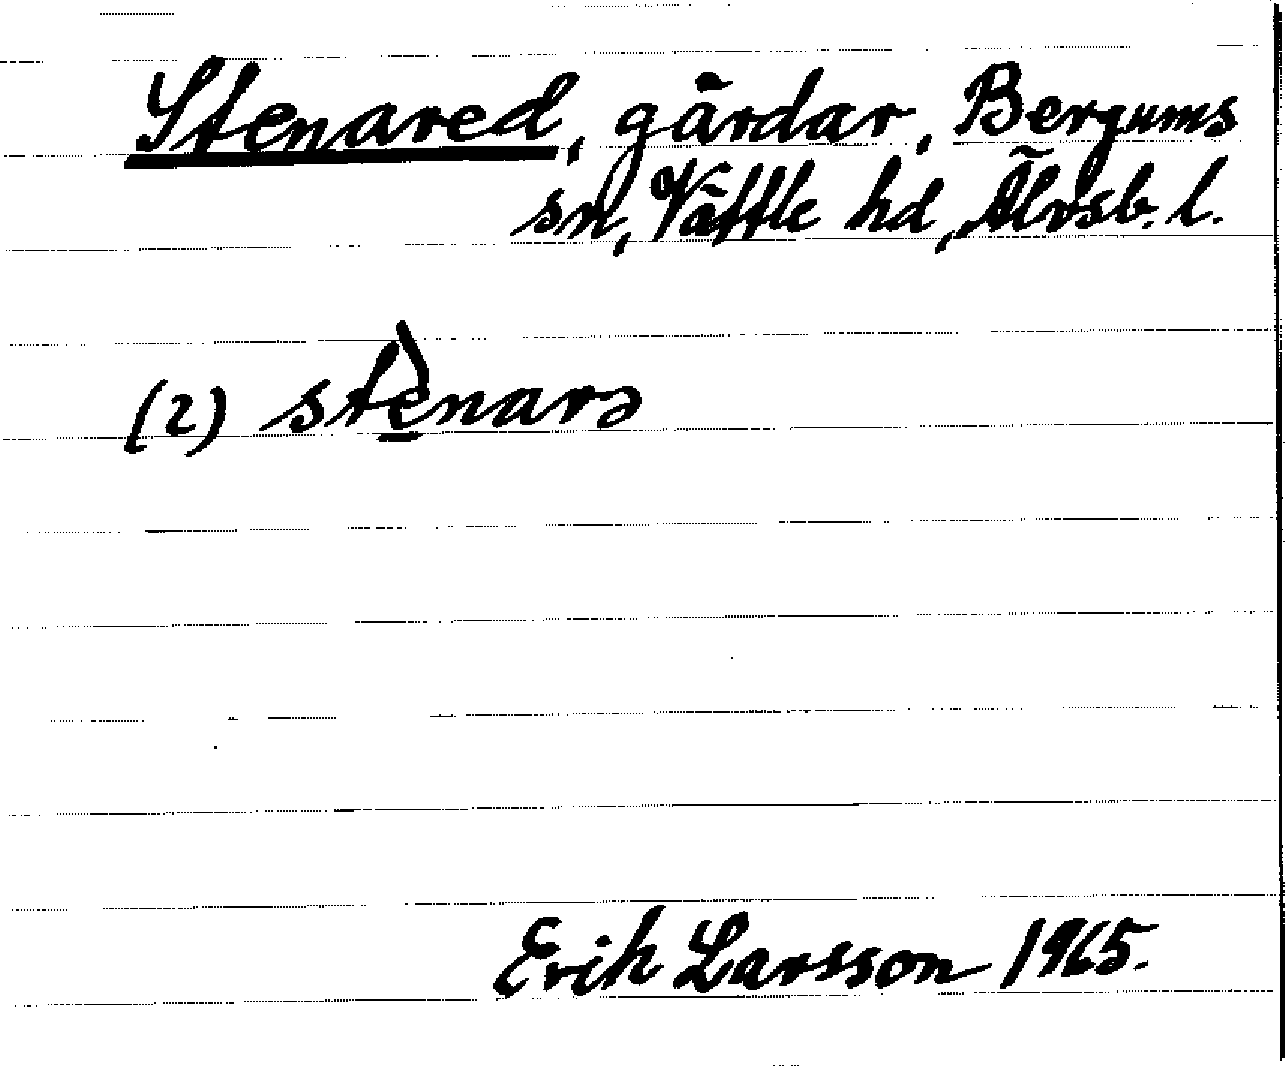 Stenared, gårdar, Bergums
sn, Vättle hd, Älvsb. l.
(2) stè̠narə
Erik Larsson 1965.